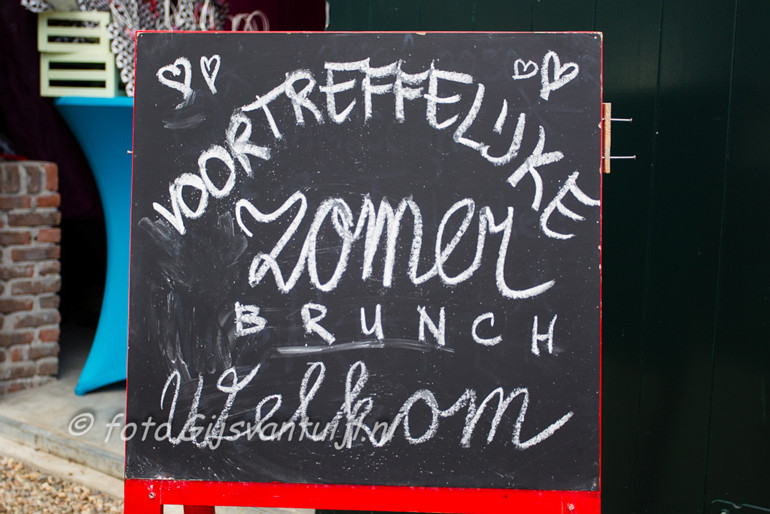 VOORTREFFELIJKE
zomer
BRUNCH
Welkom
© foto.Gijsvantuijl.nl